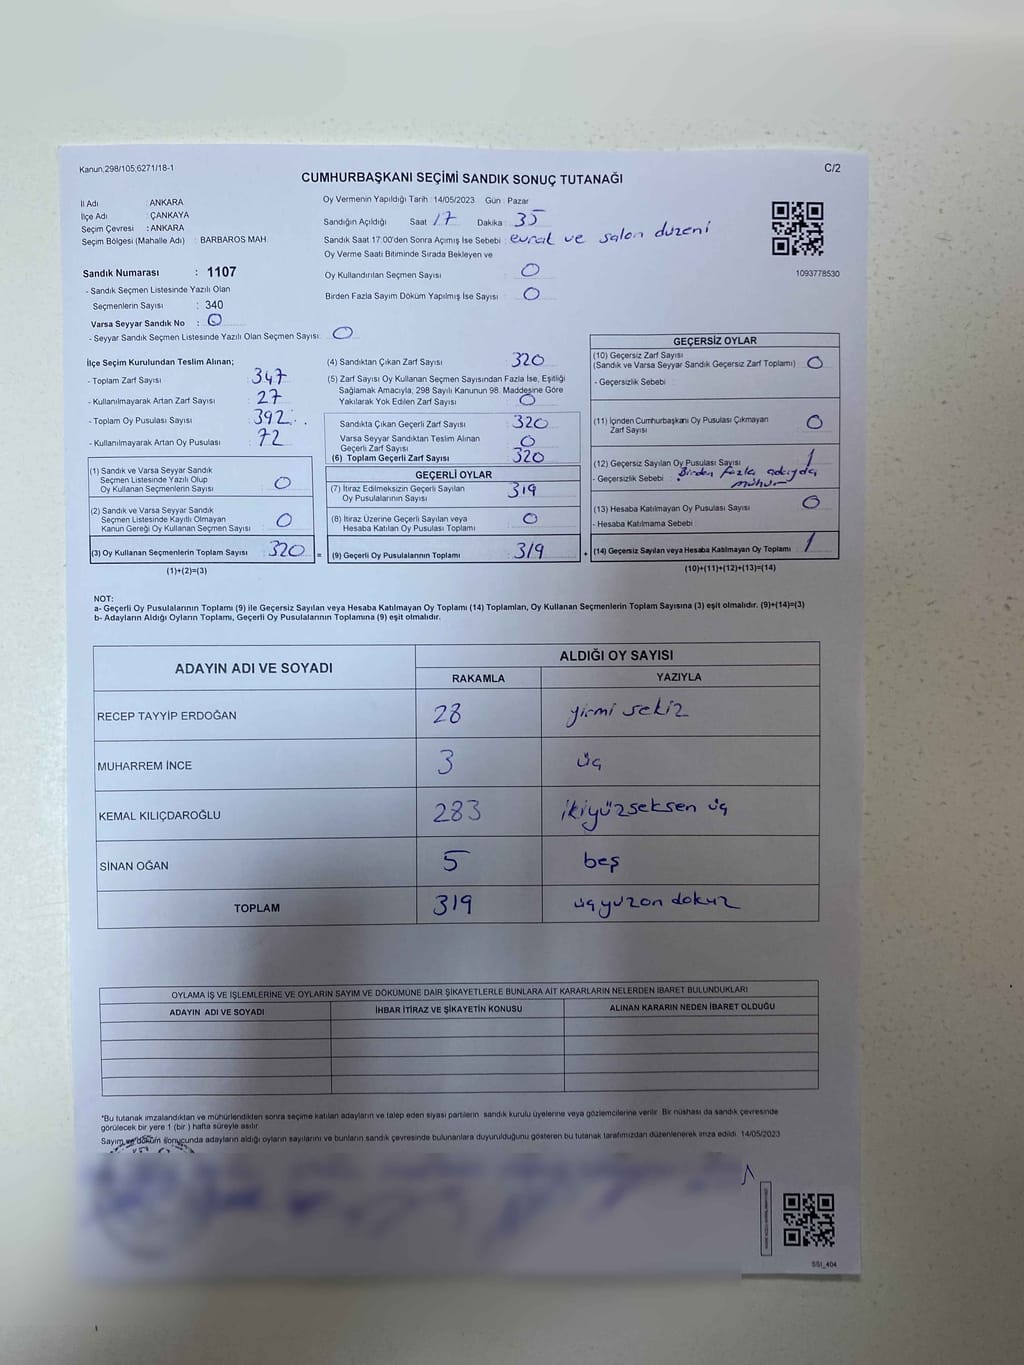 Kanun;298/105;6271/18-1
C/2
CUMHURBAŞKANI SEÇİMİ SANDIK SONUÇ TUTANAĞI
İl Adı : ANKARA
İlçe Adı : ÇANKAYA
Seçim Çevresi : ANKARA
Seçim Bölgesi (Mahalle Adı) : BARBAROS MAH.
Sandık Numarası : 1107
- Sandık Seçmen Listesinde Yazılı Olan
Seçmenlerin Sayısı : 340
Varsa Seyyar Sandık No : 0
- Seyyar Sandık Seçmen Listesinde Yazılı Olan Seçmen Sayısı : 0
Oy Vermenin Yapıldığı Tarih : 14/05/2023 Gün : Pazar
Sandığın Açıldığı Saat 17 Dakika : 35
Sandık Saat 17:00'den Sonra Açılmış İse Sebebi : evrak ve salon düzeni
Oy Verme Saati Bitiminde Sırada Bekleyen ve
Oy Kullandırılan Seçmen Sayısı : 0
Birden Fazla Sayım Döküm Yapılmış İse Sayısı : 0
1093778530
İlçe Seçim Kurulundan Teslim Alınan;
- Toplam Zarf Sayısı : 347
- Kullanılmayarak Artan Zarf Sayısı : 27
- Toplam Oy Pusulası Sayısı : 392
- Kullanılmayarak Artan Oy Pusulası : 72
(1) Sandık ve Varsa Seyyar Sandık
Seçmen Listesinde Yazılı Olup
Oy Kullanan Seçmenlerin Sayısı : 0
(2) Sandık ve Varsa Seyyar Sandık
Seçmen Listesinde Kayıtlı Olmayan
Kanun Gereği Oy Kullanan Seçmen Sayısı : 0
(3) Oy Kullanan Seçmenlerin Toplam Sayısı : 320 =
(1)+(2)=(3)
(4) Sandıktan Çıkan Zarf Sayısı : 320
(5) Zarf Sayısı Oy Kullanan Seçmen Sayısından Fazla İse, Eşitliği
Sağlamak Amacıyla, 298 Sayılı Kanunun 98. Maddesine Göre
Yakılarak Yok Edilen Zarf Sayısı : 0
Sandıkta Çıkan Geçerli Zarf Sayısı : 320
Varsa Seyyar Sandıktan Teslim Alınan
Geçerli Zarf Sayısı : 0
(6) Toplam Geçerli Zarf Sayısı : 320
GEÇERLİ OYLAR
(7) İtiraz Edilmeksizin Geçerli Sayılan
Oy Pusulalarının Sayısı : 319
(8) İtiraz Üzerine Geçerli Sayılan veya
Hesaba Katılan Oy Pusulası Toplamı : 0
(9) Geçerli Oy Pusulalarının Toplamı : 319 +
GEÇERSİZ OYLAR
(10) Geçersiz Zarf Sayısı
(Sandık ve Varsa Seyyar Sandık Geçersiz Zarf Toplamı) : 0
- Geçersizlik Sebebi :
(11) İçinden Cumhurbaşkanı Oy Pusulası Çıkmayan
Zarf Sayısı : 0
(12) Geçersiz Sayılan Oy Pusulası Sayısı : 1
- Geçersizlik Sebebi : Birden fazla adayda
mühür
(13) Hesaba Katılmayan Oy Pusulası Sayısı : 0
- Hesaba Katılmama Sebebi :
(14) Geçersiz Sayılan veya Hesaba Katılmayan Oy Toplamı : 1
(10)+(11)+(12)+(13)=(14)
NOT:
a- Geçerli Oy Pusulalarının Toplamı (9) ile Geçersiz Sayılan veya Hesaba Katılmayan Oy Toplamı (14) Toplamları, Oy Kullanan Seçmenlerin Toplam Sayısına (3) eşit olmalıdır. (9)+(14)=(3)
b- Adayların Aldığı Oyların Toplamı, Geçerli Oy Pusulalarının Toplamına (9) eşit olmalıdır.
ADAYIN ADI VE SOYADI ALDIĞI OY SAYISI
RAKAMLA YAZIYLA
RECEP TAYYİP ERDOĞAN 28 yirmi sekiz
MUHARREM İNCE 3 üç
KEMAL KILIÇDAROĞLU 283 ikiyüzseksen üç
SİNAN OĞAN 5 beş
TOPLAM 319 üçyüzon dokuz
OYLAMA İŞ VE İŞLEMLERİNE VE OYLARIN SAYIM VE DÖKÜMÜNE DAİR ŞİKAYETLERLE BUNLARA AİT KARARLARIN NELERDEN İBARET BULUNDUKLARI
ADAYIN ADI VE SOYADI İHBAR İTİRAZ VE ŞİKAYETİN KONUSU ALINAN KARARIN NEDEN İBARET OLDUĞU
*Bu tutanak imzalandıktan ve mühürlendikten sonra seçime katılan adayların ve talep eden siyasi partilerin sandık kurulu üyelerine veya gözlemcilerine verilir. Bir nüshası da sandık çevresinde
görülecek bir yere 1 (bir) hafta süreyle asılır.
Sayım ve döküm sonucunda adayların aldığı oyların sayılarını ve bunların sandık çevresinde bulunanlara duyurulduğunu gösteren bu tutanak tarafımızdan düzenlenerek imza edildi. 14/05/2023
SSI_404